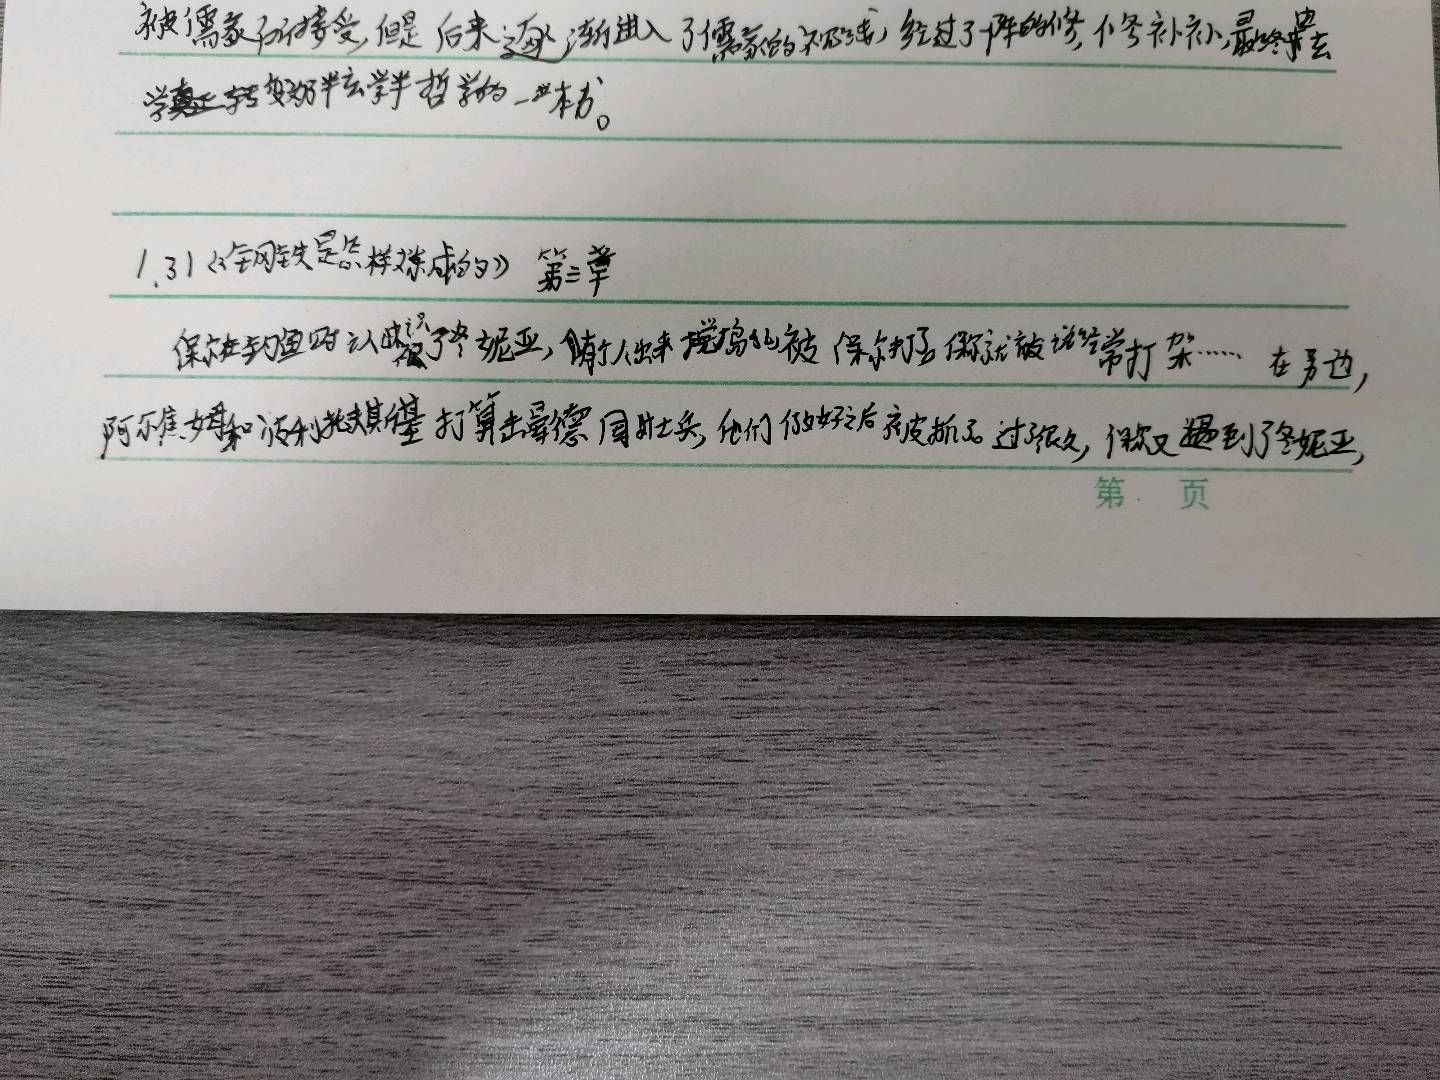 被儒家所接受,但是后来逐渐进入了儒家的视线,经过了一阵的修修补补,最终由玄
学转变为半玄学半哲学的一本书。
1.31《钢铁是怎样炼成的》 第三章
保尔在钓鱼时认识了冬妮亚,有个人出来捣乱被保尔打了 保尔就被说经常打架…… 在另边,
阿尔焦姆和波利托夫斯基打算击晕德国士兵,他们做好之后被抓了。过了很久,保尔又遇到了冬妮亚,
第 页